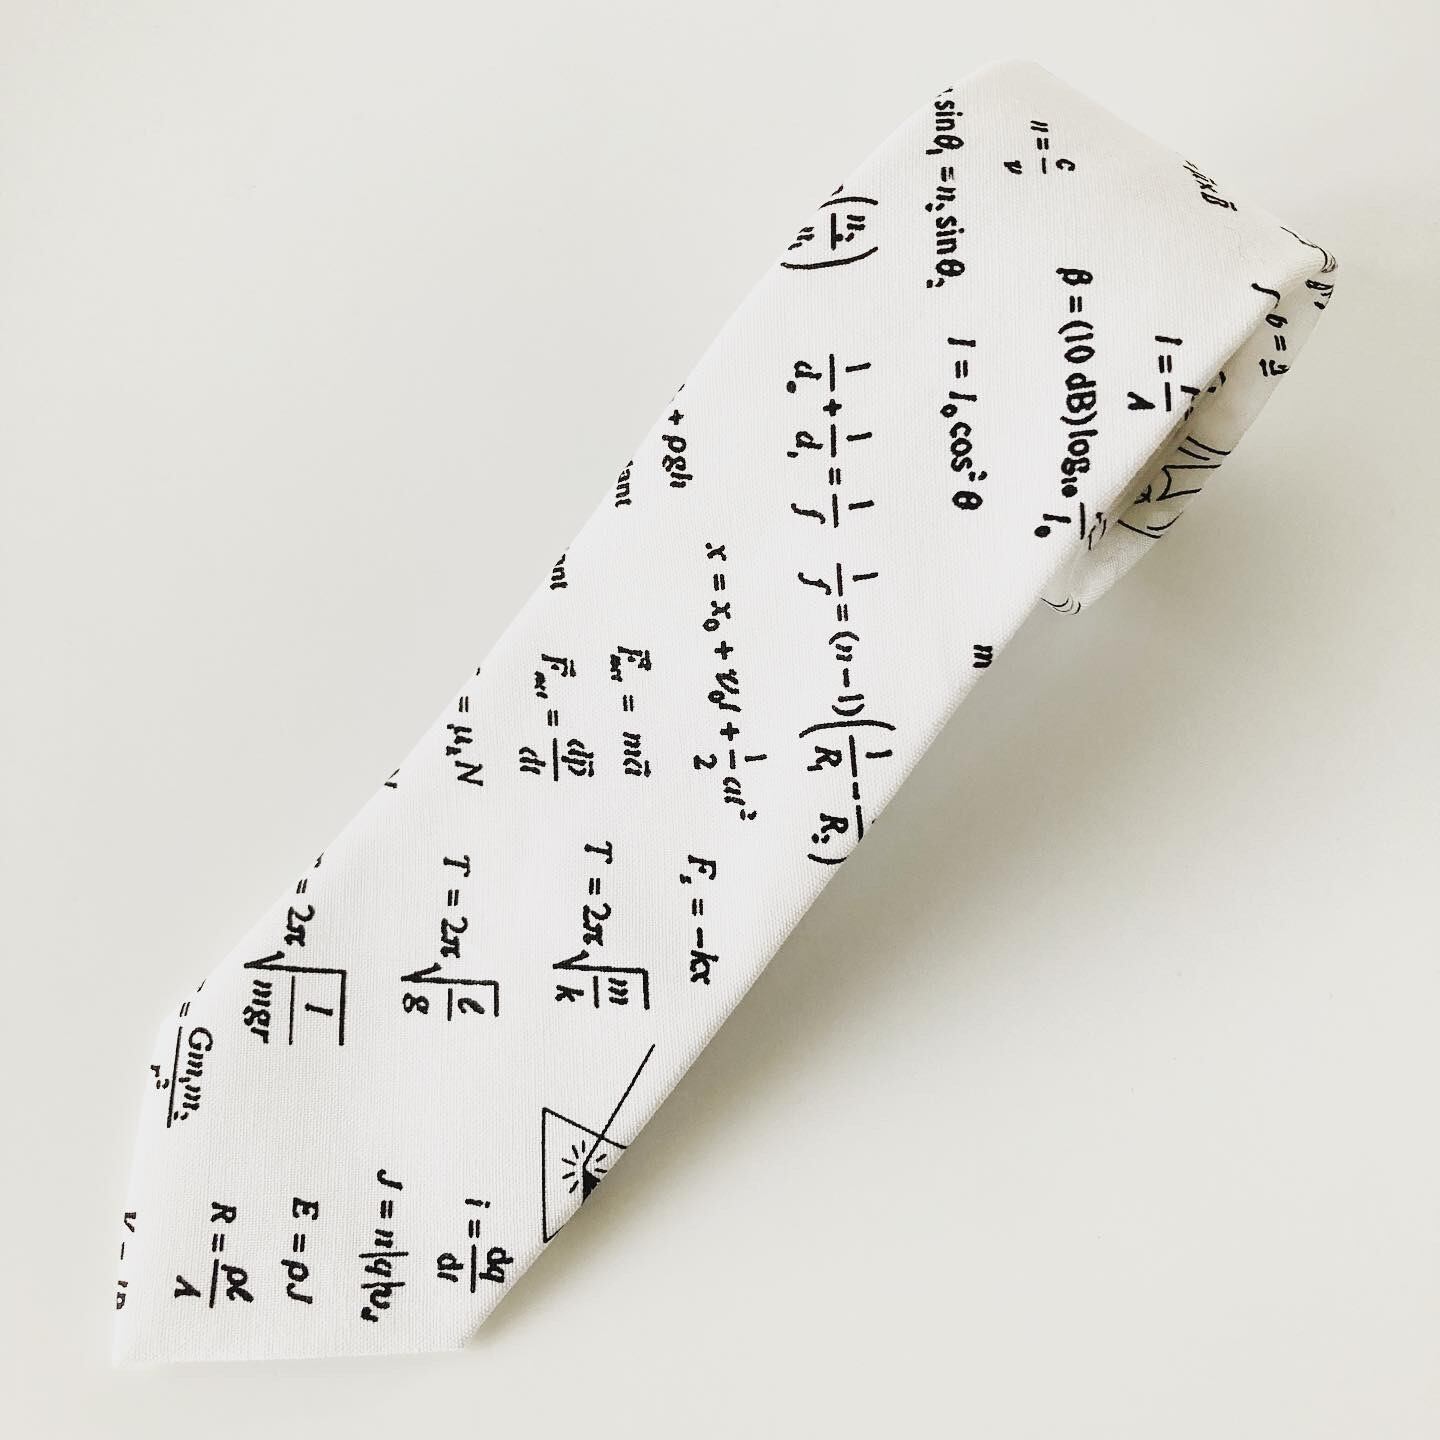 n = c/v
sinθ₁ = n₂ sinθ₂
(n₂/n₁)
β = (10 dB) log₁₀ I/I₀
I = I₀ cos² θ
1/dₒ + 1/dᵢ = 1/f
1/f = (n − 1)(1/R₁ − 1/R₂)
m
+ ρgh
x = x₀ + v₀t + ½at²
= ma⃗
= dp⃗/dt
= μₖN
Fₛ = −kx
T = 2π√(m/k)
T = 2π√(ℓ/g)
= 2π√(I/mgr)
= Gm₁m₂/r²
i = dq/dt
E = ρJ
R = ρℓ/A